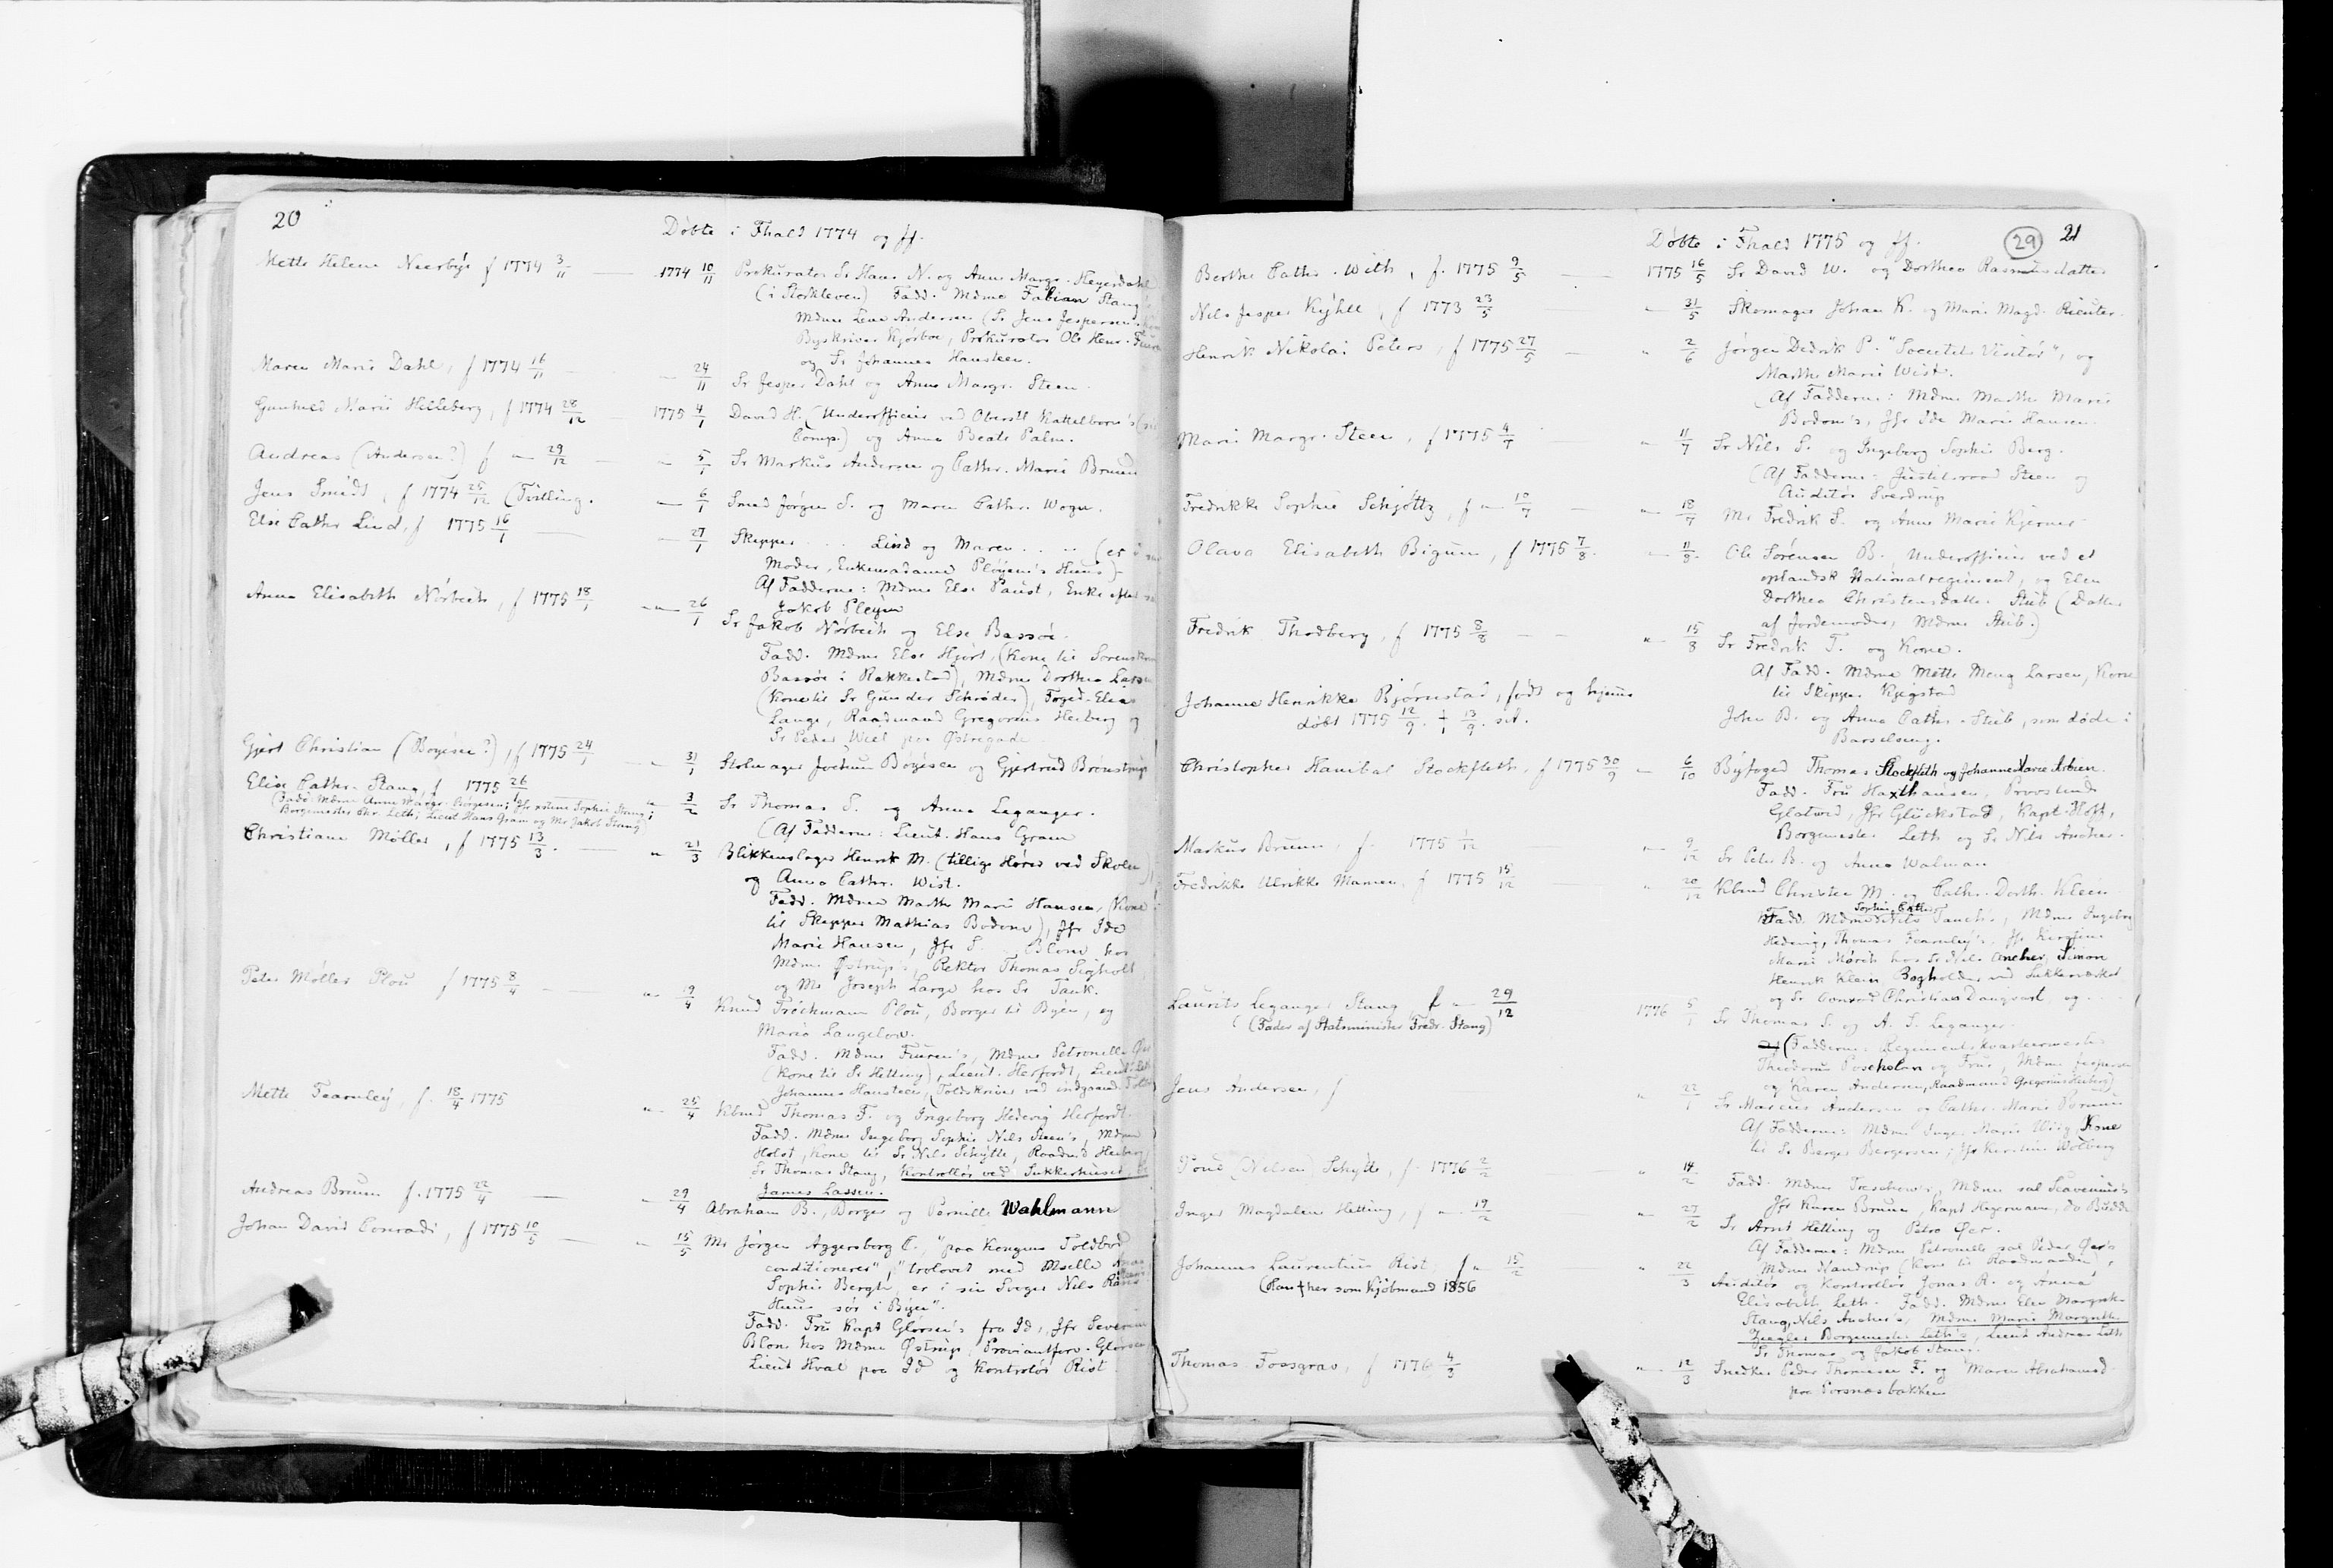 20
Døbte i Fhald 1774 og ff.
Mette Helene Neerbye f 1774 3/11 — 1774 10/11 Prokurator Sr Hans N. og Anne Margr. Heyerdahl
(i Storkleven) Fadd. Mdme Fabian Stang's
Mdme Lene Andersen (Sr Jens Jespersen's
Byskriver Kjørboe, Prokurator Ole Henr.
og Sr Johannes Hansteen.
Maren Marie Dahl, f 1774 16/11 — 24/11 Sr Jesper Dahl og Anne Margr. Steen.
Gunhild Marie Helleberg, f 1774 28/12 — 1775 4/1 David H. (Underofficier ved Oberstl Kattelborn's
Comp.) og Anna Beate Palm.
Andreas (Andersen?) f " 29/12 — 5/1 Sr Markus Andersen og Cathr. Marie Bruun
Jens Smidt, f 1774 25/12 (Tvilling. — 6/1 Smed Jørgen S. og Maren Cathr. Wogn.
Else Cathr Lind, f 1775 16/1 — 27/1 Skipper . . . Lind og Maren . . . . (er i
Moder, Enkemadame Pløyen's Huus)
Af Fadderne: Mdme Else Paust, Enke efter
Jakob Pleyen
Anna Elisabeth Nørbech, f 1775 18/1 — 26/1 Sr Jakob Nørbech og Else Bassøe.
Fadd. Mdme Else Hjort, (Kone til Sorenskr
Bassøe i Rakkestad), Mdme Dorthea
(Kone til Sr Gunder Schrøder), Foged Elias
Lange, Raadmand Gregorius Heiberg og
Sr Peder Wiel paa Østregade.
Gjert Christian (Boyesen?), f 1775 24/1 — 31/1 Stolmager Jochum Böyesen og Gjertrud Brönstrup
Elise Cathr. Stang, f 1775 26/1 — 3/2 Sr Thomas S. og Anna Leganger.
(Fadd Mdme Anne Margr. Börgesen; Jfr Sophie Stang;
Borgemester Chr. Leth; Lieut Hans Gram og Mr Jakob Stang)
(Af Fadderne: Lieut. Hans Gram
Christiane Møller, f 1775 13/3. — " 21/3 Blikkenslager Henrik M. (tillige Hører ved Skolen)
og Anna Cathr. Wist.
Fadd. Mdme Marthe Marie Hansen, (Kone
til Skipper Mathias Bodom), Jfr Ide
Marie Hansen, Jfr S. Blom hos
Mdme Østrup's, Rektor Thomas Sigholt
og Mr Joseph Large hos Sr Tank.
Peter Møller Plou f 1775 8/4 — " 19/4 Knud Tröchmann Plou, Borger til Byen, og
Maria Langeloe.
Fadd. Mdme Fiuren's, Mdme Petronelle Øer
(Kone til Sr Hetting), Lieut. Herfordt, Lieut.
Johannes Hansteen (Toldskriver ved indgaaende Told
Mette Fearnley, f. 18/4 1775 " 25/4 Kbmd Thomas F. og Ingeborg Hedevig Herfordt.
Fadd. Mdme Ingeborg Sophie Nils Steen's, Mdme
Holst, Kone til Sr Nils Schytte, Raadmd Heiberg
Sr Thomas Stang, Kontrollør ved Sukkerhuset
James Lassen.
Andreas Bruun f. 1775 22/4 — 29/4 Abraham B., Borger og Pernille Wahlmann
Johan David Conradi, f 1775 10/5 — " 15/5 Mr Jörgen Aggersborg C., "paa Kongens Toldbod
conditionerer", "trolovet med Mselle
Sophie Bergh, er i sin Svoger Nils
Huus sør i Byen".
Fadd. Fru Kapt Glørsen's fra Id, Jfr Severine
Blom hos Mdme Østrup, Proviantforv. Glørsen
Lieut Hval paa Id og Kontrolør Rist.
Døbte i Fhald 1775 og ff. 29 21
Berthe Cathr. With, f. 1775 9/5 — 1775 16/5 Sr David W. og Dorthea Rasmusdatter
Nils Jesper Kyhll, f 1773 23/5 " 31/5 Skomager Johan K. og Marie Magd. Rieuter.
Henrik Nikolai Peters, f 1775 27/5 — " 2/6 Jørgen Dedrik P. "Societets Visitør", og
Marthe Marie Wist.
(Af Fadderne: Mdme Marthe Marie
Bodom's, Jfr Ide Marie Hansen.
Marie Margr. Steen, f 1775 4/7 — " 11/7 Sr Nils S. og Ingeborg Sophie Berg.
(Af Fadderne: Justitsraad Steen og
Auditør Sverdrup
Fredrikke Sophie Schjøttz, f " 10/7 — " 18/7 Mr Fredrik S. og Anne Marie Kjerner
Olava Elisabeth Bigum, f 1775 7/8. " 11/8. Ole Sørensen B., Underofficier ved et
oplandsk Nationalregiment, og Elen
Dorthea Christensdatter Stub (Datter
af Jordemoder, Mdme Stub.)
Fredrik Thodberg, f 1775 8/8 — " 15/8 Sr Fredrik T. og Kone.
Af Fadd. Mdme Mette Meng Larsen, Kone
til Skipper Kjegstad
Johanne Henrikke Bjørnstad, født og hjemme
døbt 1775 12/9. † 13/9. sst. John B. og Anne Cathr. Stub, som døde i
Barselseng.
Christopher Hanibal Stockfleth, f 1775 30/9 — 6/10 Byfoged Thomas Stockfleth og Johanne Marie Arbien.
Fadd. Fru Haxthausen, Provstinde
Glatved, Jfr Glückstad, Kapt. Hoff,
Borgemester Leth og Sr Nils Ancher.
Markus Bruun, f. 1775 1/12 " 9/12 Sr Peter B. og Anna Walman
Fredrikke Ulrikke Mamen, f 1775 15/12 " 20/12 Kbmd Christen M. og Cathr. Dorth. Klein
Fadd. Mdme Sophie Cathr Nils Tanche, Mdme Ingeborg
Hedevig, Thomas Fearnley's, Jfr
Marie Mørch hos Sr Nils Ancher, Simon
Henrik Klein Bogholder ved Sukkerverket
og Sr Conrad Christian Danqvart, og . . .
Laurits Leganger Stang, f " 29/12 1776 5/1 Sr Thomas S. og A. S. Leganger.
(Fader af Statsminister Fredr. Stang)
(Fadderne: Regimentskvartermester
Theodorus Poscholan og Frue, Mdme Jespersen
og Karen Andersen, Raadmand Gregorius Heiberg)
Jens Andersen, f " 22/1 Sr Marcus Andersen og Cathr. Marie Bruun
Af Fadderne: Mdme Inger Marie Wiig, Kone
til Sr Berger Bergersen; Jfr Kirstine Wolberg
Poul (Nilsen) Schytte, f. 1776 2/2 — " 14/2 Fadd. Mdme Treschow's, Mdme sal Scavenius's
Jfr Karen Bruun, Kapt Hegermann, do Budde
Inger Magdalene Hetting, f " 19/2 — " 27/2 Sr Arnt Hetting og Petro Øer.
Af Fadderne: Mdme Petronelle sal Peder Øer's
Mdme Nandrup (Kone til Raadmanden),
Johannes Laurentius Rist, f " 15/2 — " 22/3 Auditør og Kontrollør Jonas R. og Anna
(Han † her som Kjøbmand 1856
Elisabeth Leth. Fadd. Mdme Elen Margrethe
Stang, Nils Ancher's, Mdme Marie Margrethe
Ziegler Borgemester Leth's, Lieut Andreas Leth
Sr Thomas og Jakob Stang.
Thomas Fossgrav, f 1776 4/3 " 12/3 Snedker Peder Thomesen F. og Maren Abrahamsd
paa Porsnæsbakken